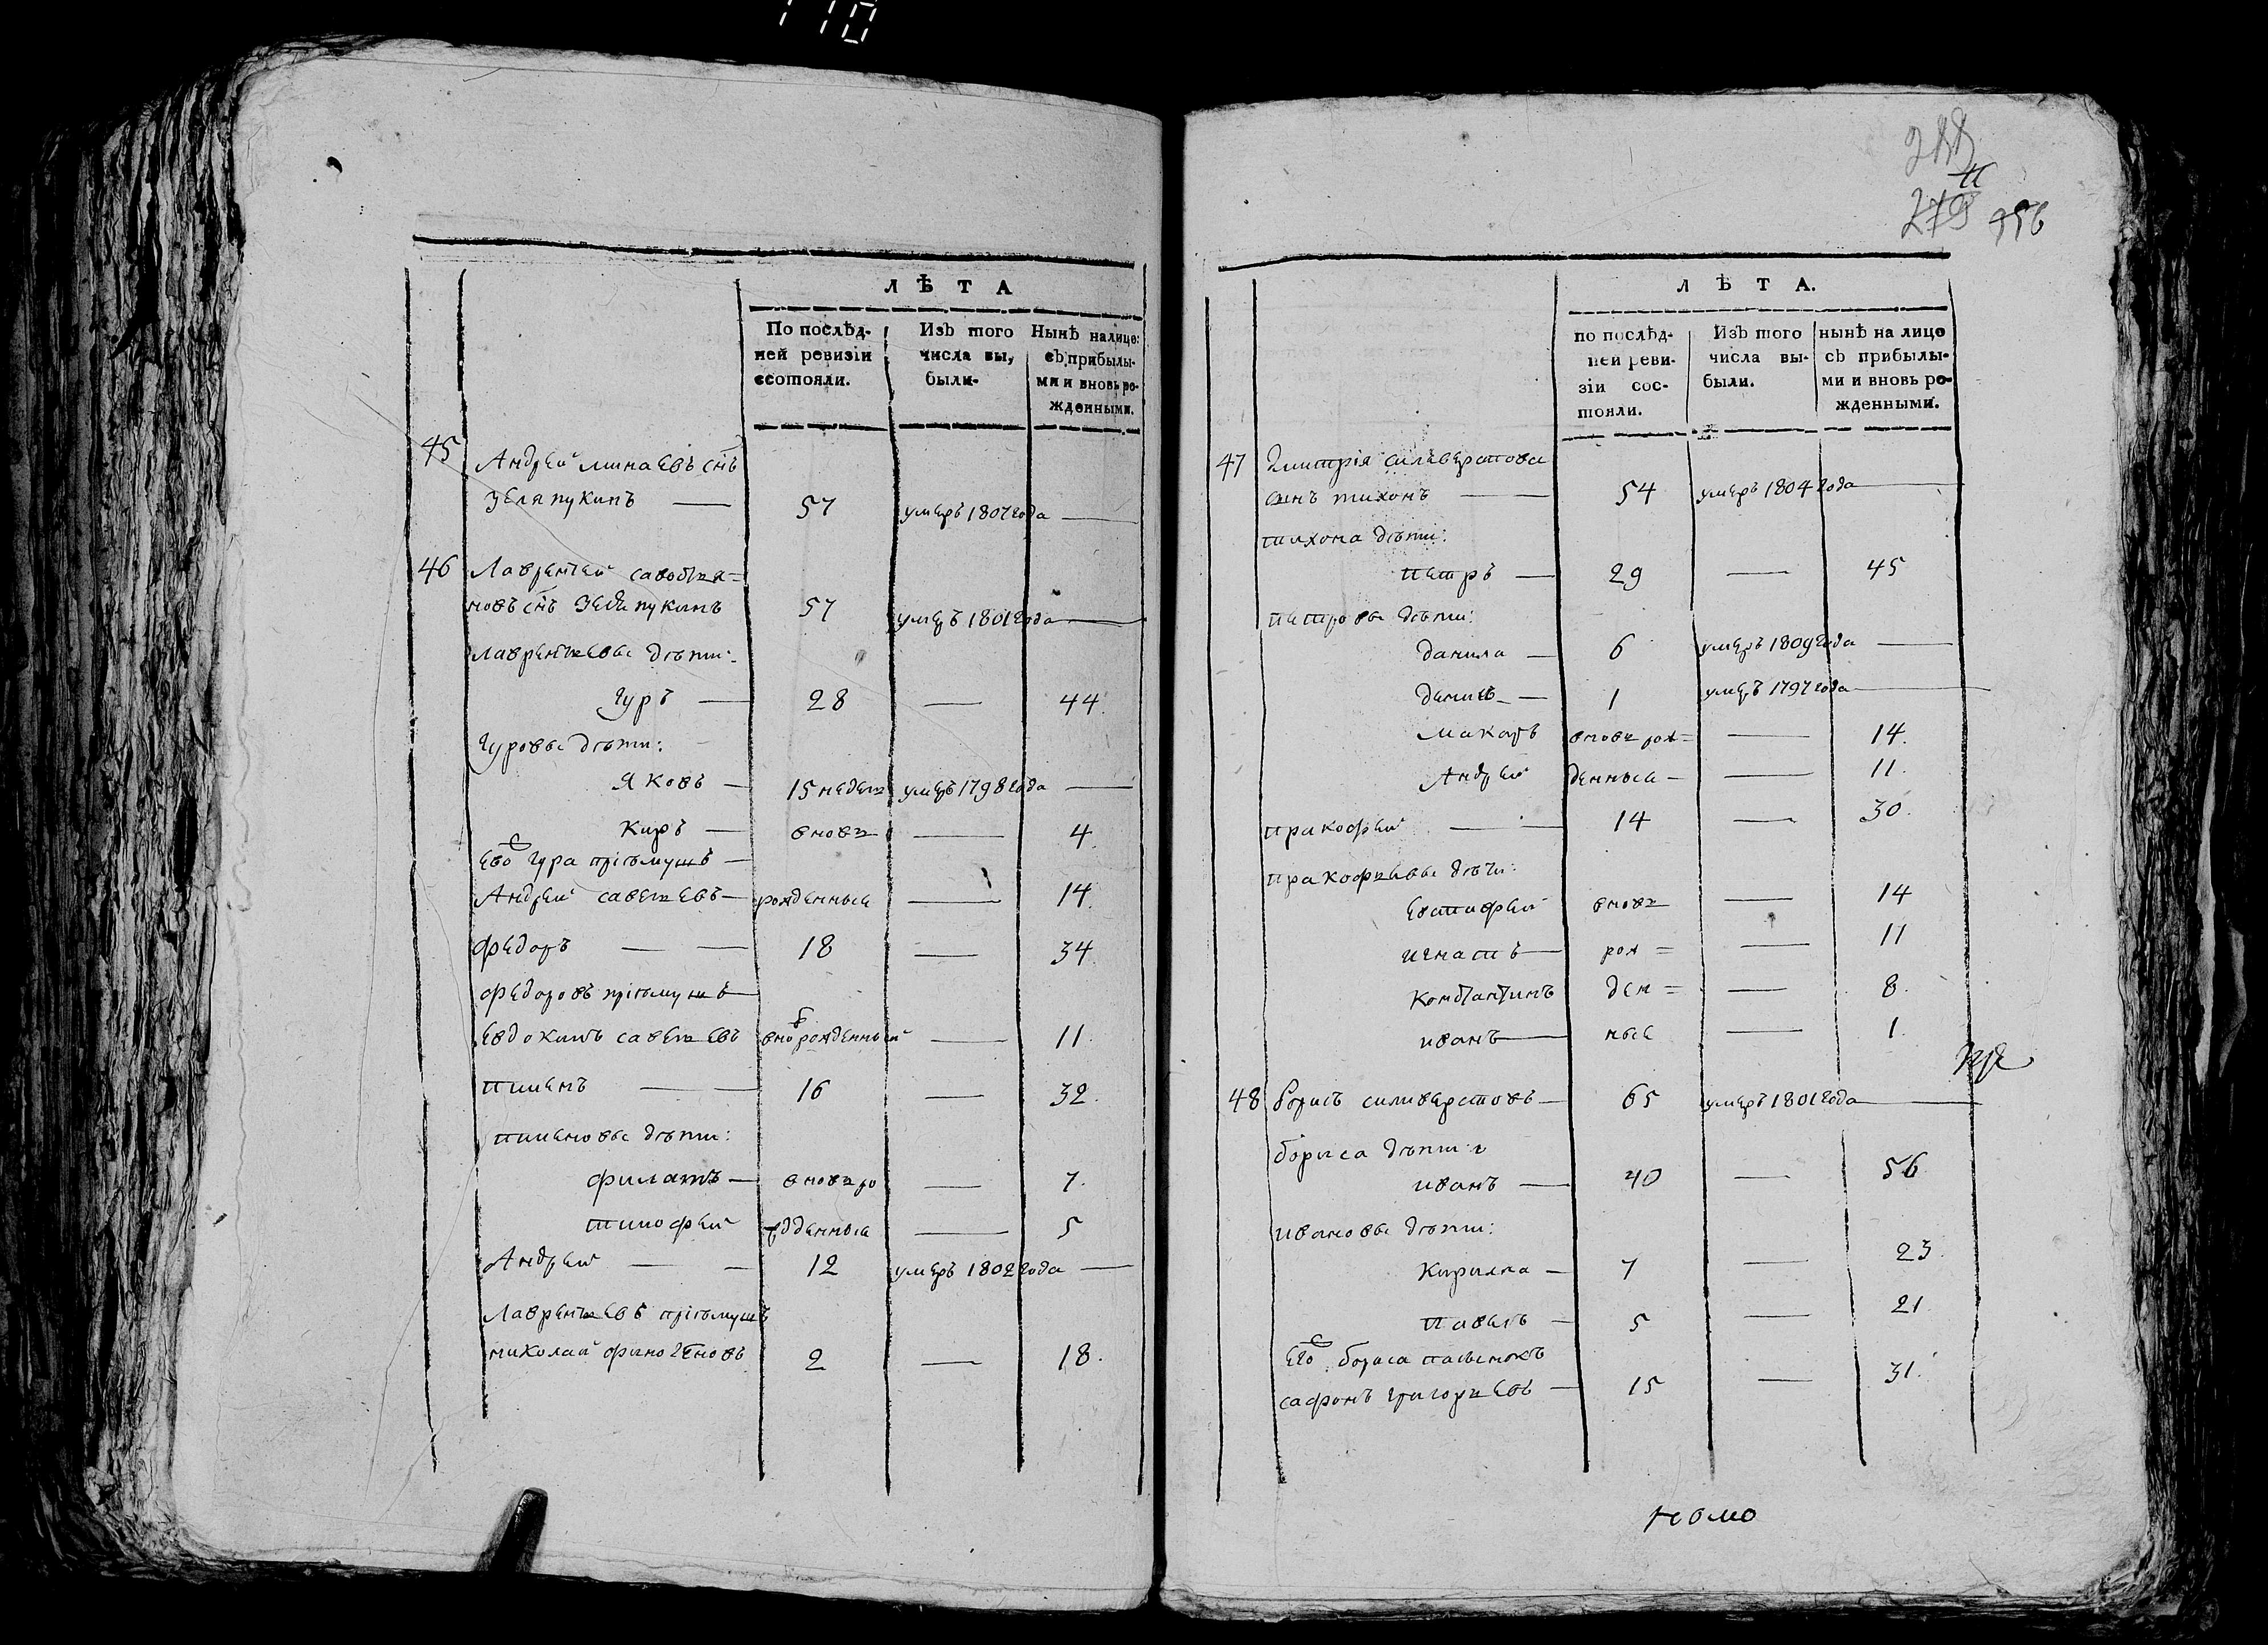 110
ЛѢТА
По послѣд-
ней ревизіи
состояли.
Изъ того
числа вы,
были-
Нынѣ налицо:
съ прибылы-
ми и вновь ро-
жденными.
45 Андрей минаевъ снъ
57 умеръ 1807 года —
46 Лаврентей
новъ снъ 57 умеръ 1801 года —
лаврентьевы дѣти:
гуръ — 28 — 44.
гуровы дѣти:
яковъ — 15 недель умеръ 1798 года —
киръ — вновь — 4.
ево гура пріемышъ —
Андрей савельевъ — рожденные — 14.
федоръ — — 18 — 34.
федоровъ пріемышъ —
евдокимъ савельевъ вноврожденный — 11.
пименъ — — 16 — 32.
пименовы дѣти:
филатъ — вновь ро — 7.
тимофей жденные — 5
Андрей — — 12 умеръ 1802 года —
Лаврентьевъ пріемышъ
николай финогеновъ 2 — 18.
279 356
ЛѢТА.
по послѣд-
ней реви-
зіи сос-
тояли.
Изъ того
числа вы-
были.
нынѣ на лицо
съ прибылы-
ми и вновь ро-
жденными.
47 дмитрія силиверстова
сынъ тихонъ — 54 умеръ 1804 года —
тихона дѣти:
петръ — 29 — 45
петровы дѣти:
данила — 6 умеръ 1809 года —
денисъ — 1 умеръ 1797 года —
макаръ вновь рож= — 14.
Андрей денные — — 11.
пракофей — — 14 — 30.
пракофьевы дѣти:
евстифей вновь — 14
игнатъ — рож = — 11
константинъ ден = — 8.
иванъ — ные — 1.
48 борисъ силиверстовъ — 65 умеръ 1801 года —
бориса дѣти:
иванъ — 40 — 56
ивановы дѣти:
кирилла — 7 — 23.
павелъ — 5 — 21.
ево бориса пасынокъ
сафонъ григорьевъ — 15 — 31.